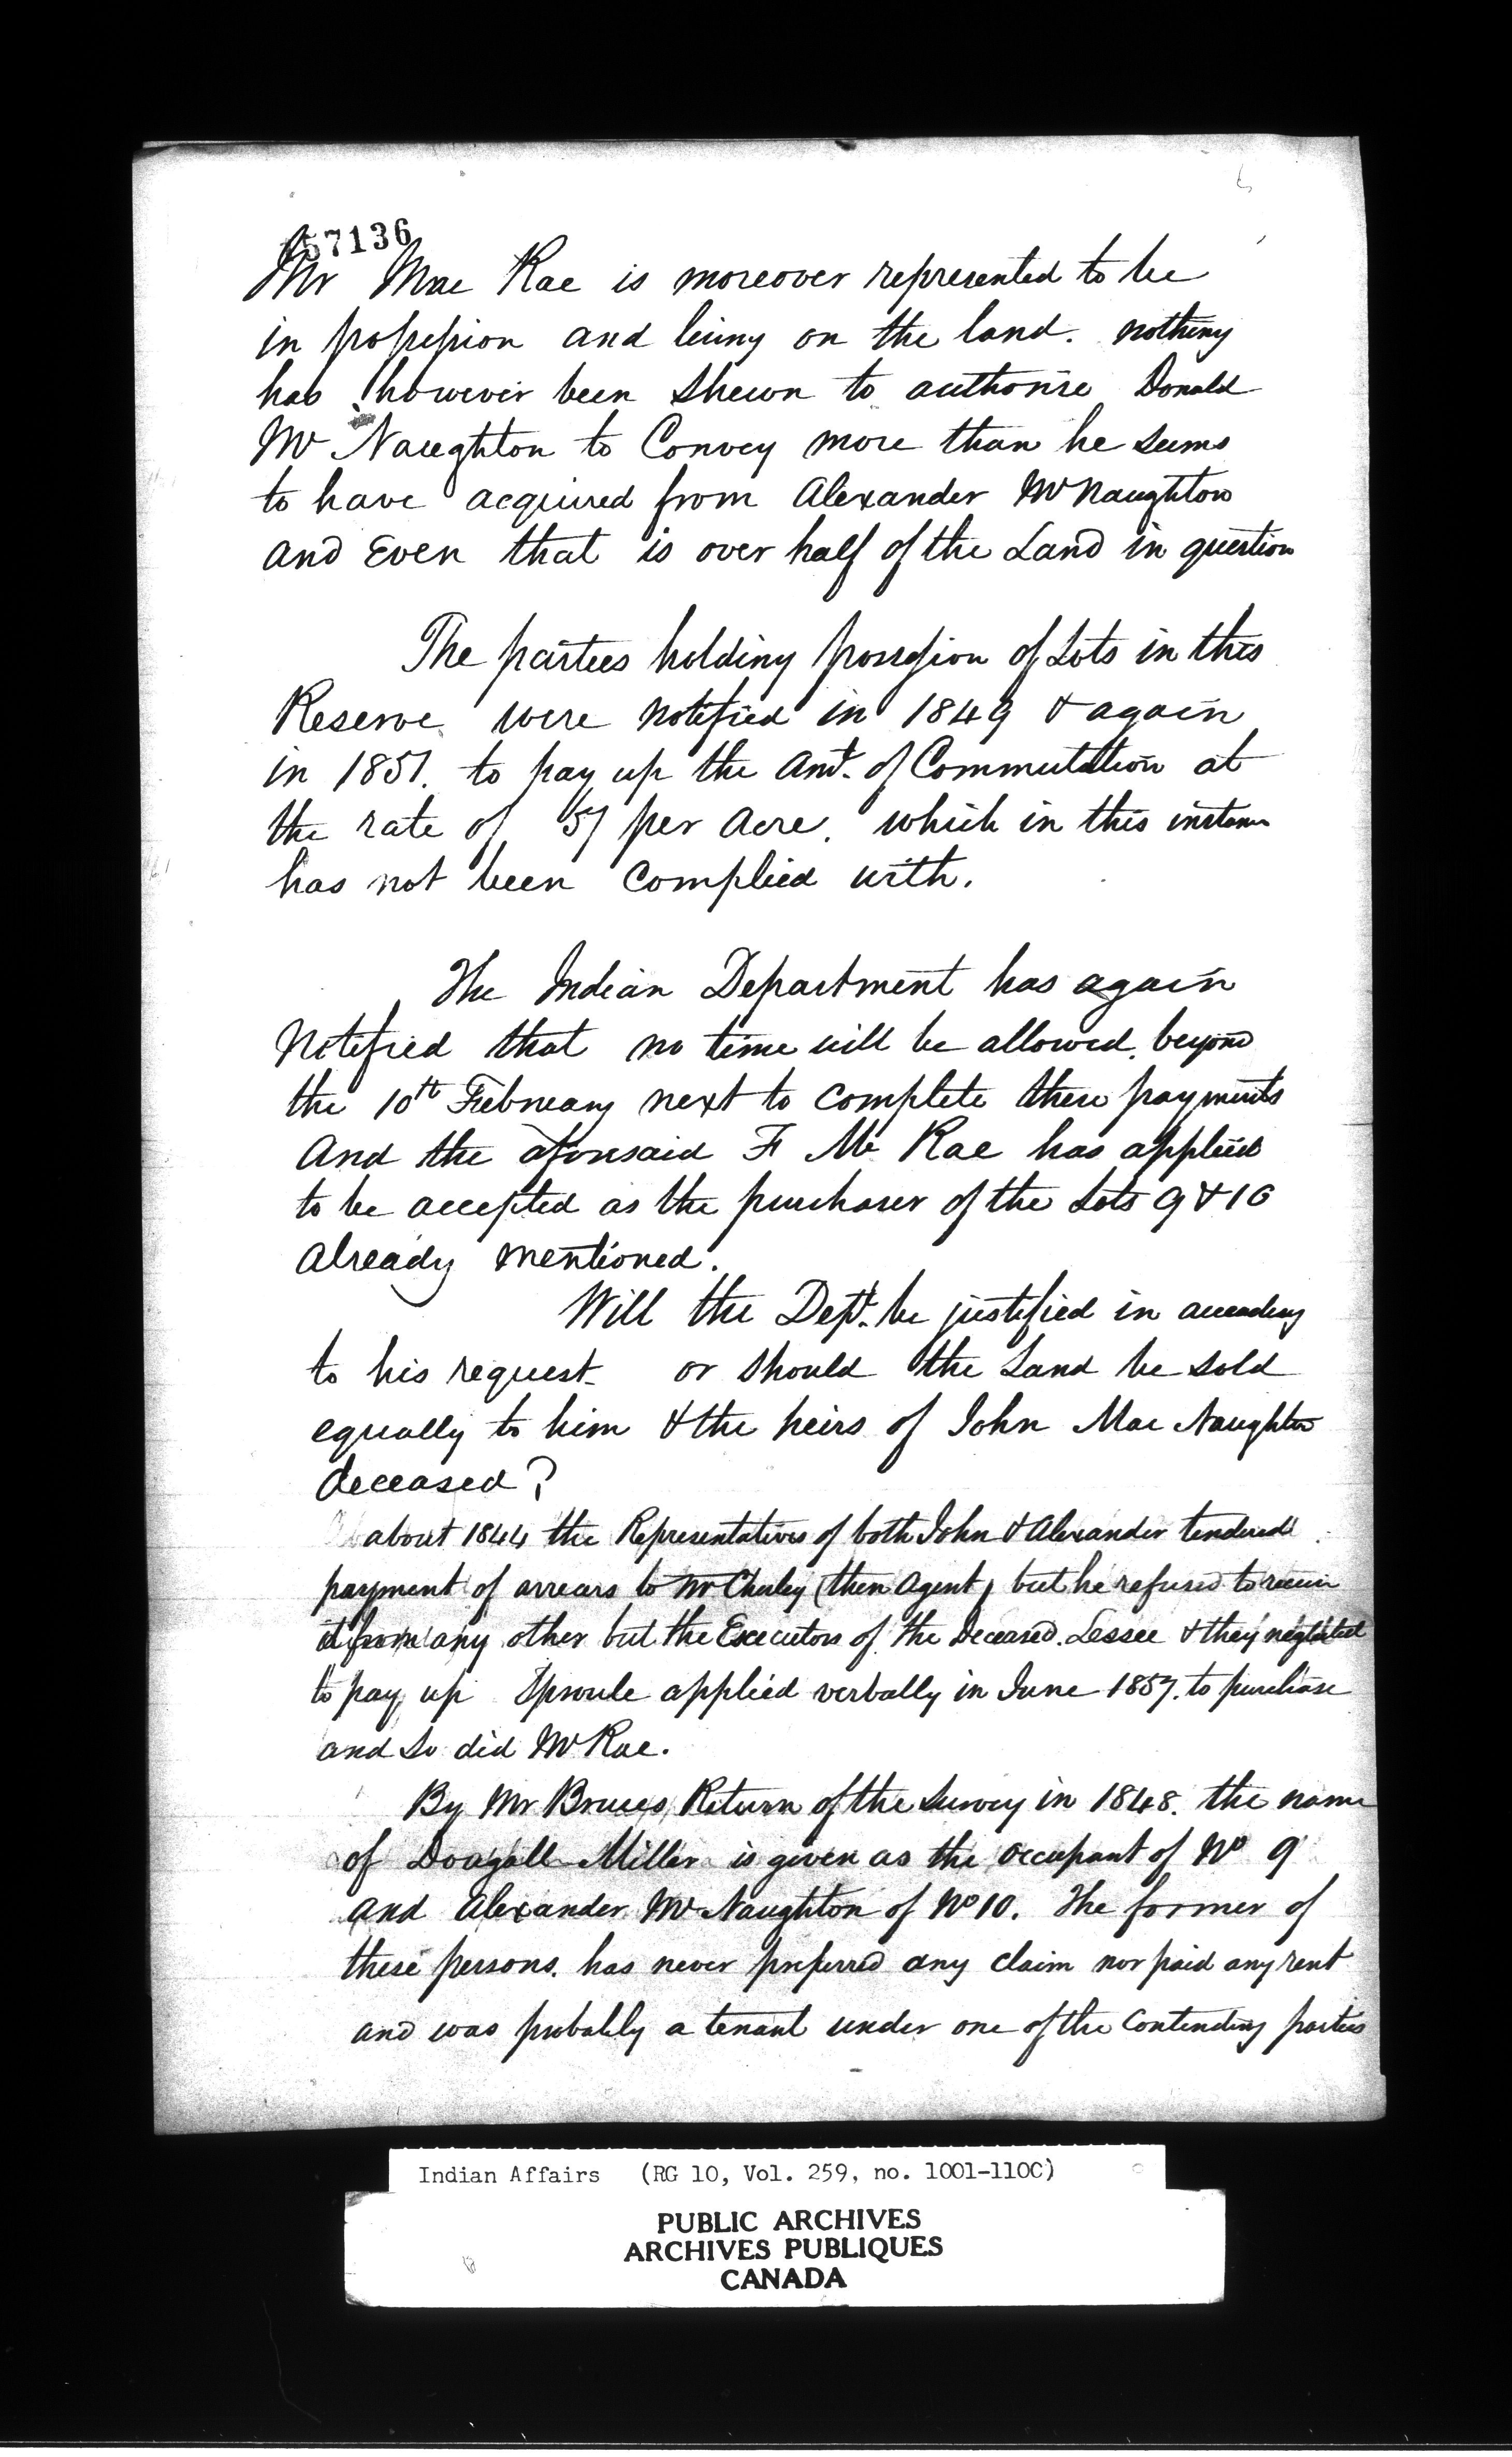 157136
Mr Mac Rae is moreover represented to be
in possession and living on the land. nothing
has however been shewn to authorise Donald
Mc Naughton to Convey more than he seems
to have acquired from Alexander McNaughton
and Even that is over half of the Land in question
The parties holding possession of Lots in this
Reserve were notified in 1849 & again
in 1851. to pay up the amt. of Commutation at
the rate of 5/ per Acre. which in this instance
has not been Complied with.
The Indian Department has again
Notified that no time will be allowed beyond
the 10th February next to complete these payments
And the aforesaid F Mc Rae has applied
to be accepted as the purchaser of the Lots 9 & 10
already mentioned.
Will the Dept. be justified in acceeding
to his request or should the Land be sold
equally to him & the heirs of John Mac Naughton
deceased?
about 1844 the Representatives of both John & Alexander tendered
payment of arrears to Mr Chesley (then Agent) but he refused to receive
it from any other but the Executors of the Deceased Lessee & they neglected
to pay up Sproule applied verbally in June 1857. to purchase
and so did McRae.
By Mr Bruces Return of the Survey in 1848. the name
of Dougall Miller is given as the occupant of No 9
and Alexander McNaughton of No 10. The former of
these persons. has never preferred any claim nor paid any rent
and was probably a tenant under one of the Contending parties
Indian Affairs (RG 10, Vol. 259, no. 1001-1100)
PUBLIC ARCHIVES
ARCHIVES PUBLIQUES
CANADA